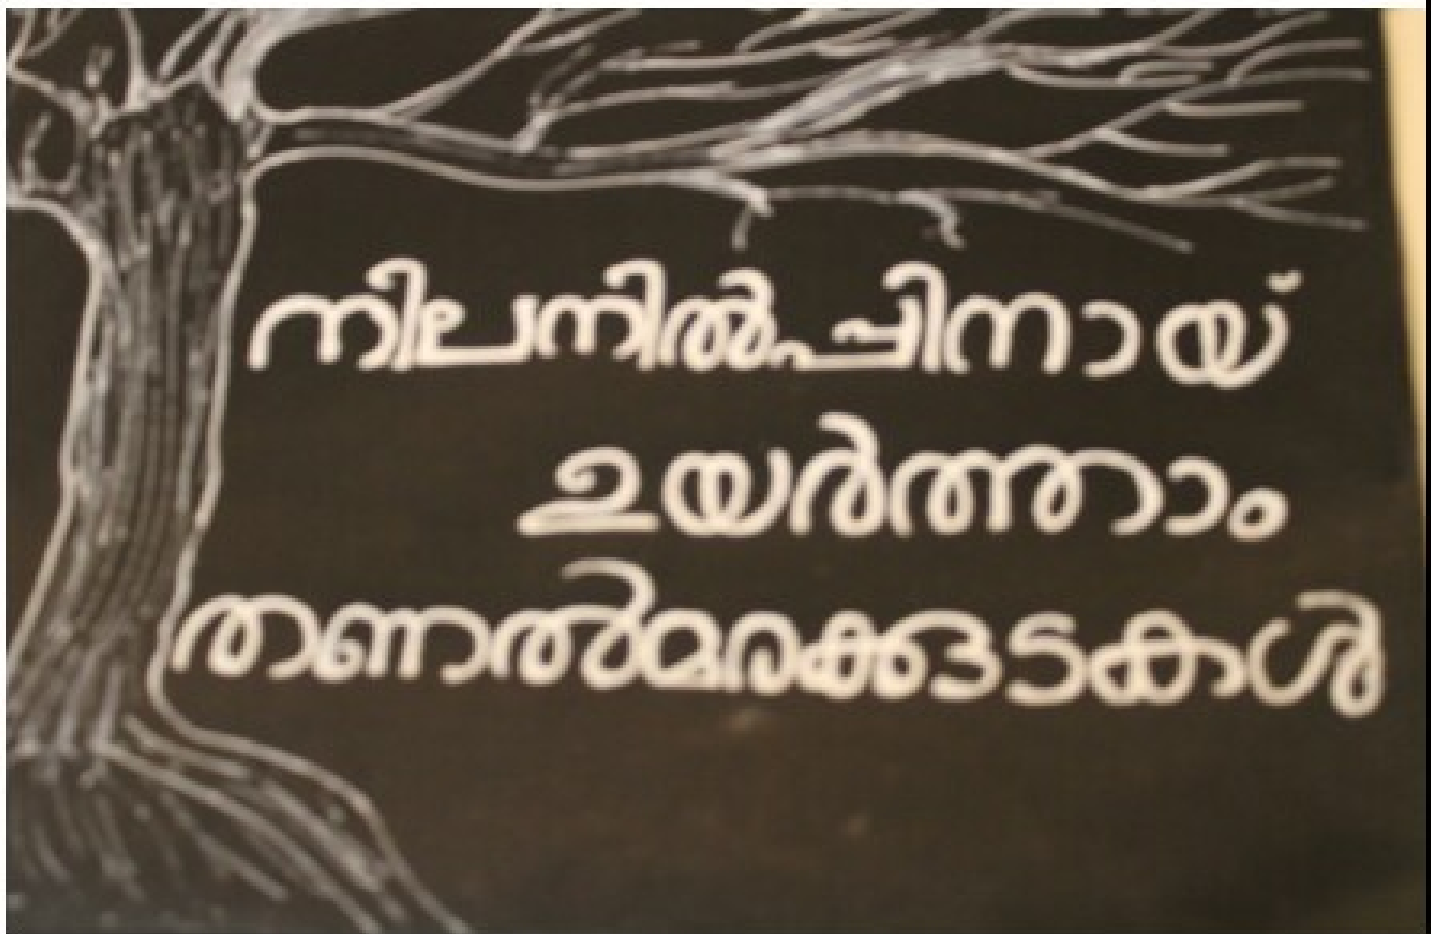 നിലനിൽപ്പിനായ്
ഉയർത്താം
തണൽമരക്കുടകൾ